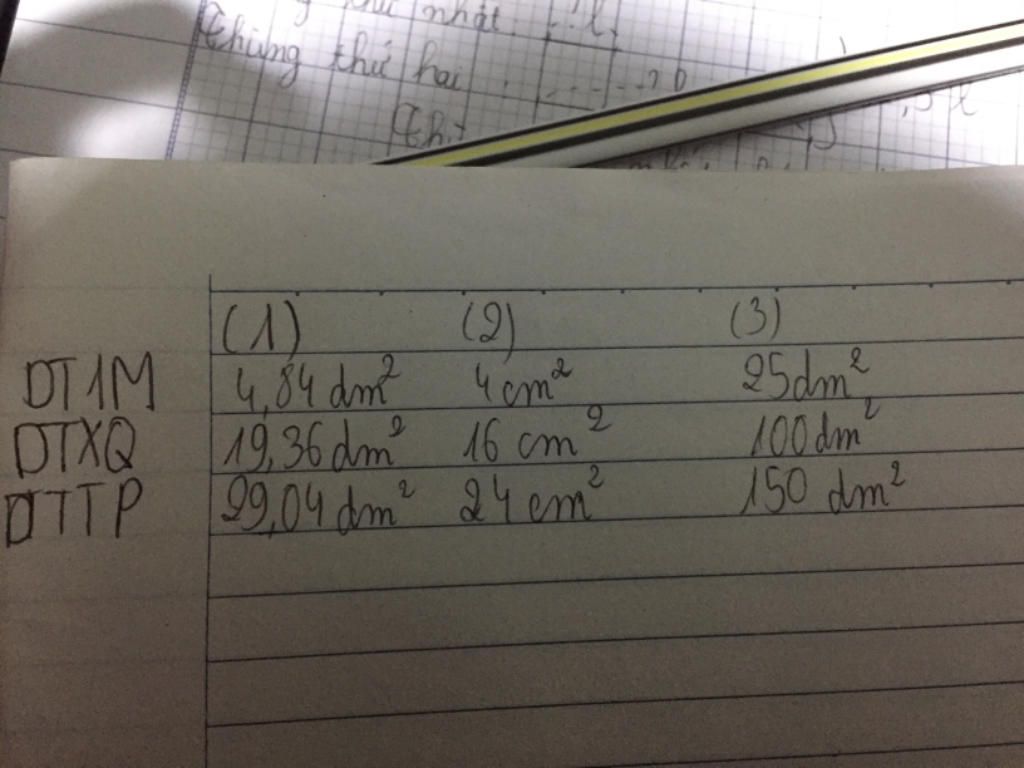 thứ nhất
Thùng thứ hai
(1) (2) (3)
DT1M 4,84 dm² 4 cm² 25dm²
DTXQ 19,36 dm² 16 cm² 100dm²
DTTP 29,04 dm² 24 cm² 150 dm²